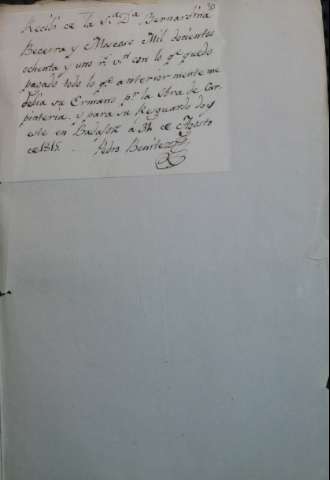 30
Recibí de la S.ª D.ª Bernardina
Becerra y Moscaro Mil docientos
ochenta y uno r.ˢ v.ⁿ con lo q.ᵉ quedo
pagado todo lo q.ᵉ anteriormente me
debia su Ermano p.ʳ la Obra de Car
pinteria. y para su Resguardo doy
este en Badajoz á 31 de Agosto
de 1815. Pedro Benitez